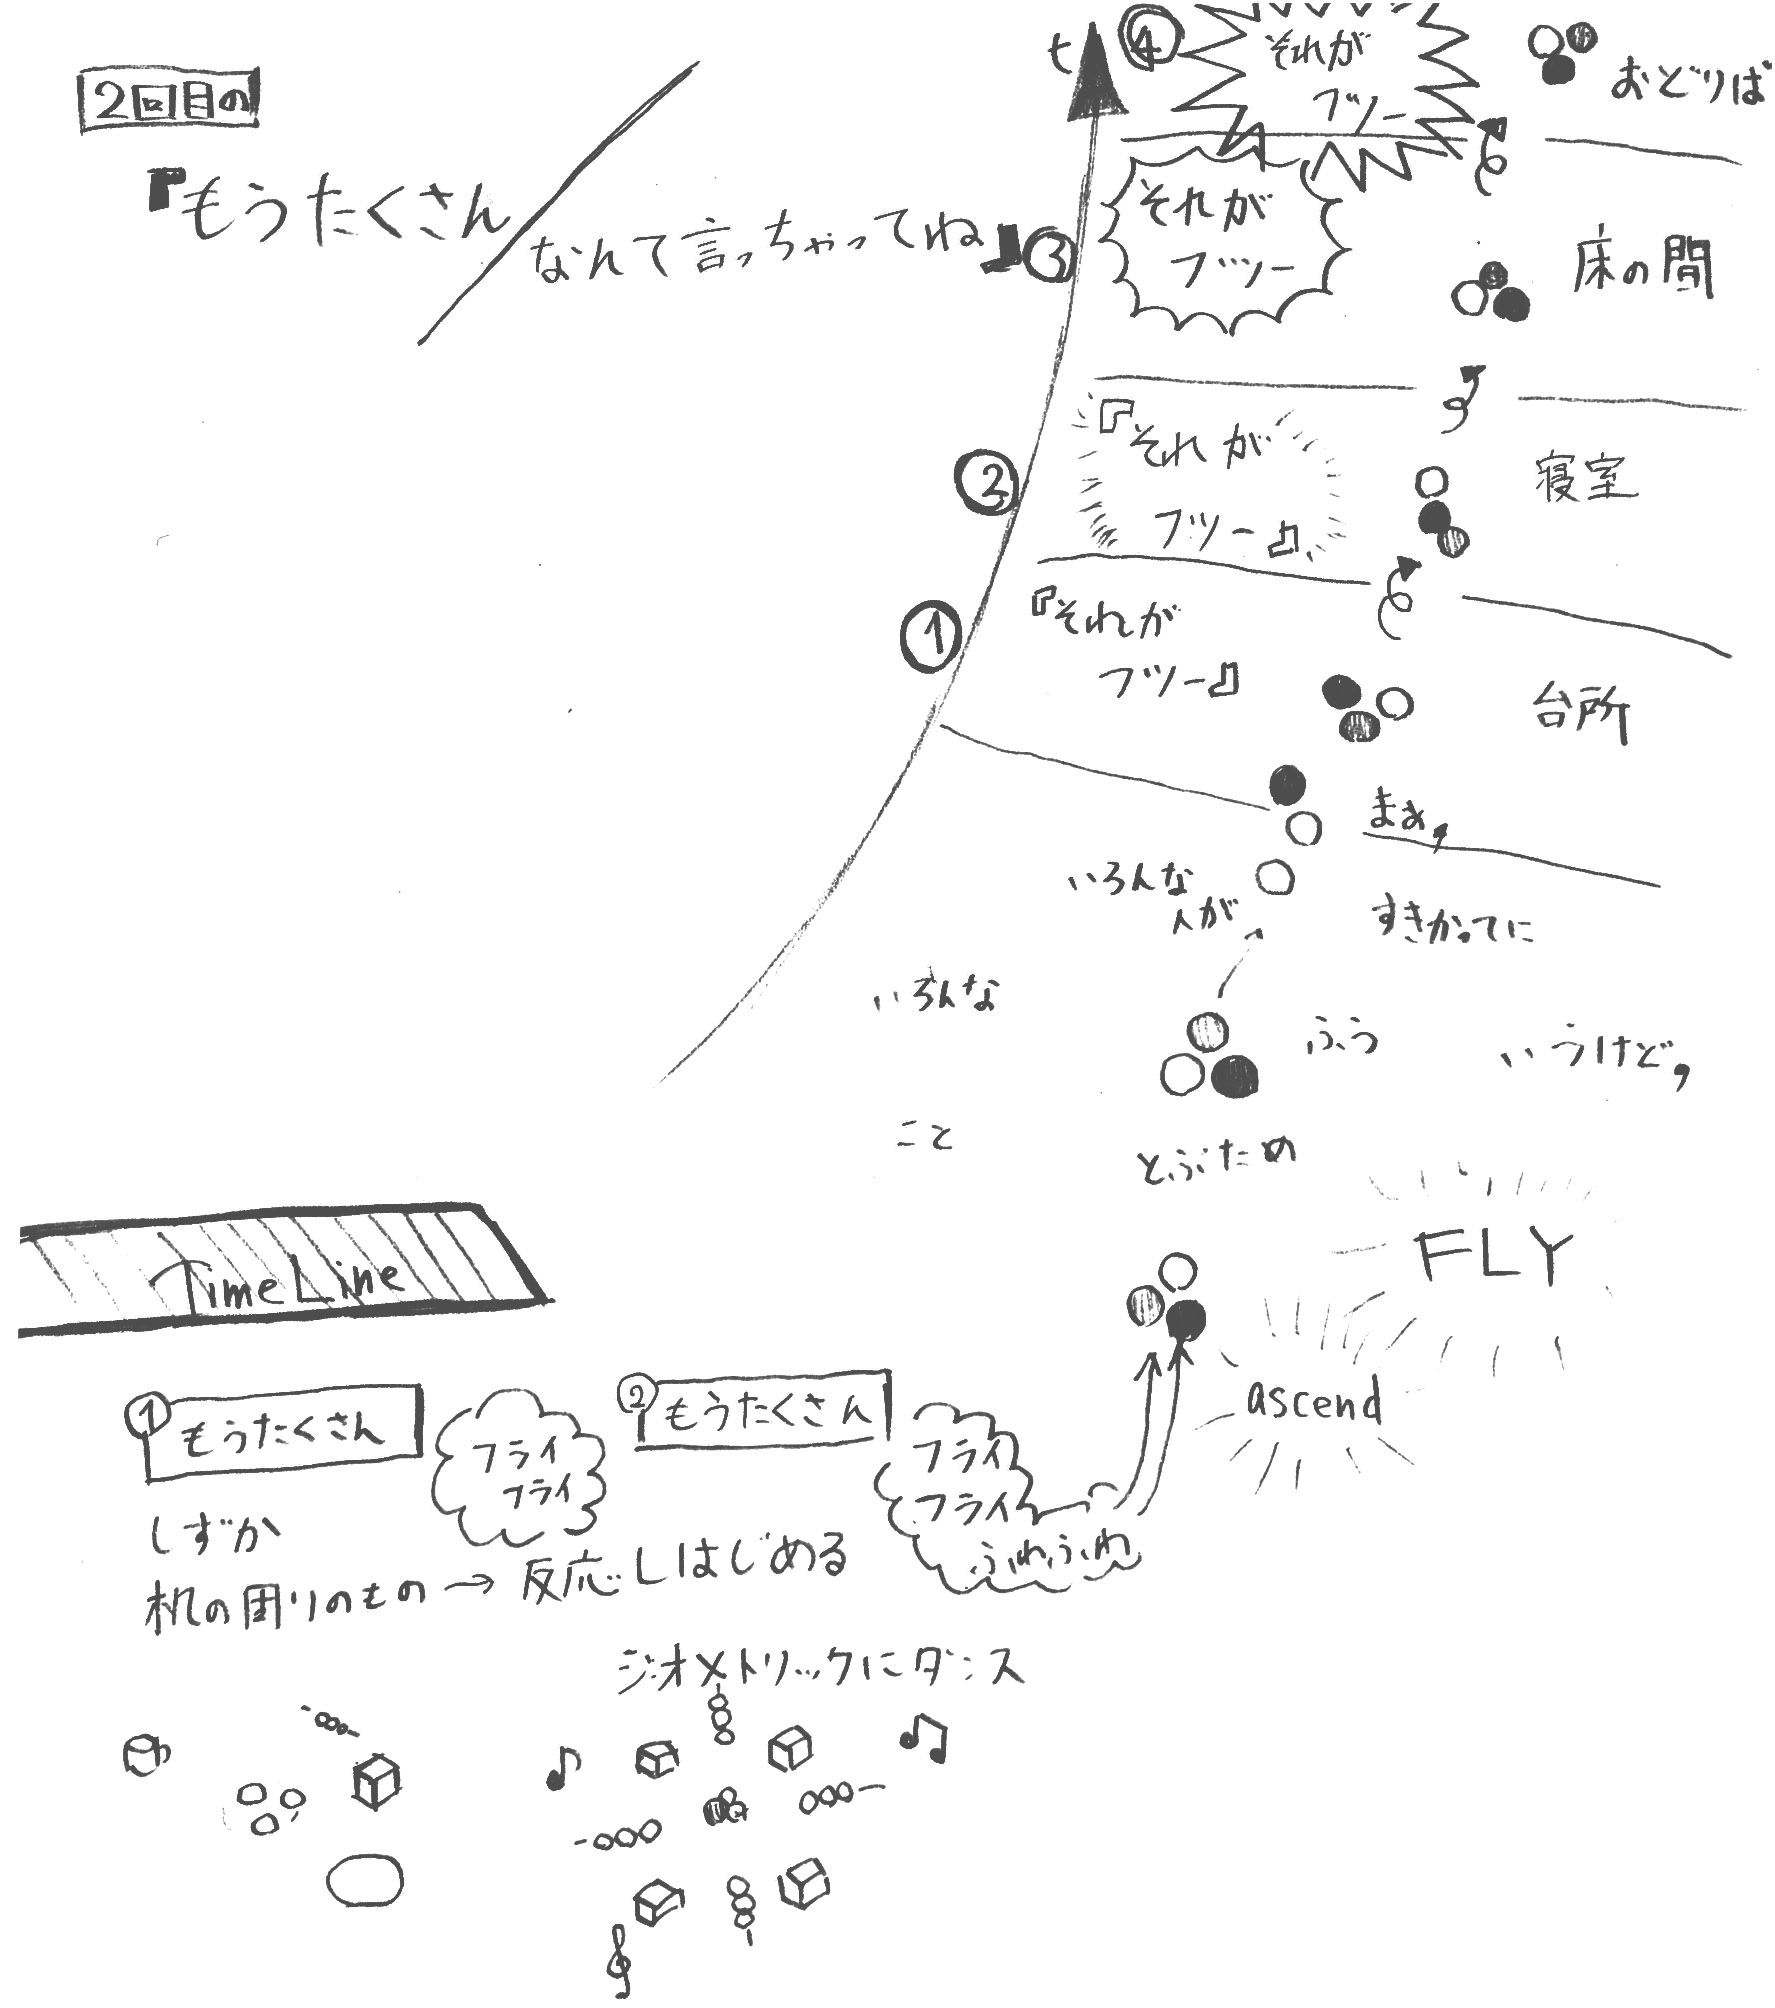 2回目の
『もうたくさん
なんて言っちゃってね』
t
④
それが
フツー
おどりば
③
それが
フツー
床の間
②
『それが
フツー』
寝室
①
『それが
フツー』
台所
まぁ,
いろんな
人が
すきかってに
いろんな
ふう
いうけど,
こと
とぶため
FLY
ascend
TimeLine
①
もうたくさん
フライ
フライ
②
もうたくさん
フライ
フライ
ふわふわ
しずか
机の周りのもの→反応しはじめる
ジオメトリックにダンス